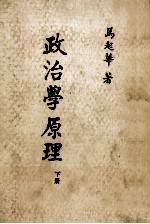 馬起華 著
政治學原理
下册